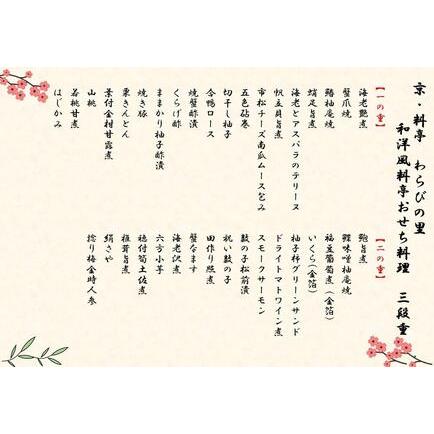 京・料亭 わらびの里
和洋風料亭おせち料理 三段重
【一の重】
海老艶煮
蟹爪焼
鰆柚庵焼
蛸足旨煮
海老とアスパラのテリーヌ
帆立貝旨煮
市松チーズ南瓜ムース包み
五色砧巻
切干し柚子
合鴨ロース
焼蟹酢漬
くらげ酢
ままかり柚子酢漬
焼き豚
栗きんとん
葉付金柑甘露煮
山桃
若桃甘煮
はじかみ
【二の重】
鮑旨煮
鰹味噌柚庵焼
福豆葡萄煮(金箔)
いくら(金箔)
柚子柿グリーンサンド
ドライトマトワイン煮
スモークサーモン
数の子松前漬
祝い数の子
田作り照煮
蟹なます
海老沢煮
六方小芋
穂付筍土佐煮
椎茸旨煮
絹さや
捻り梅金時人参